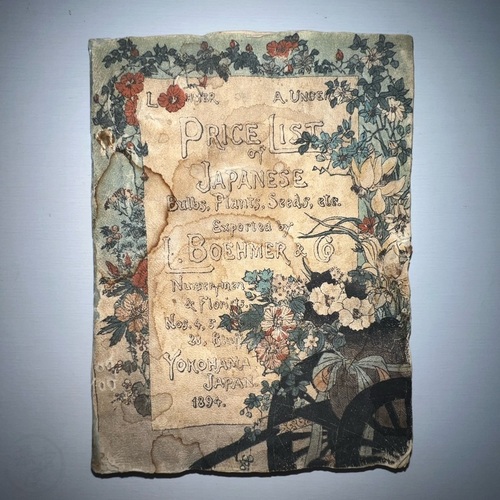 A. Unger
PRICE LIST
OF
JAPANESE
Bulbs, Plants, Seeds, etc.
Exported by
L. BOEHMER & Co
Nurserymen
& Florists
Nos. 4, 5
28, Bluff
YOKOHAMA
JAPAN
1894.